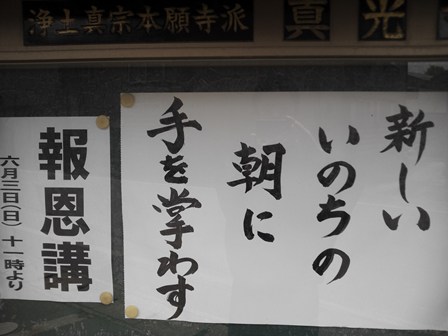 浄土真宗本願寺派
真光
新しい
いのちの
朝に
手を掌わす
報恩講
六月三日(日) 十一時より